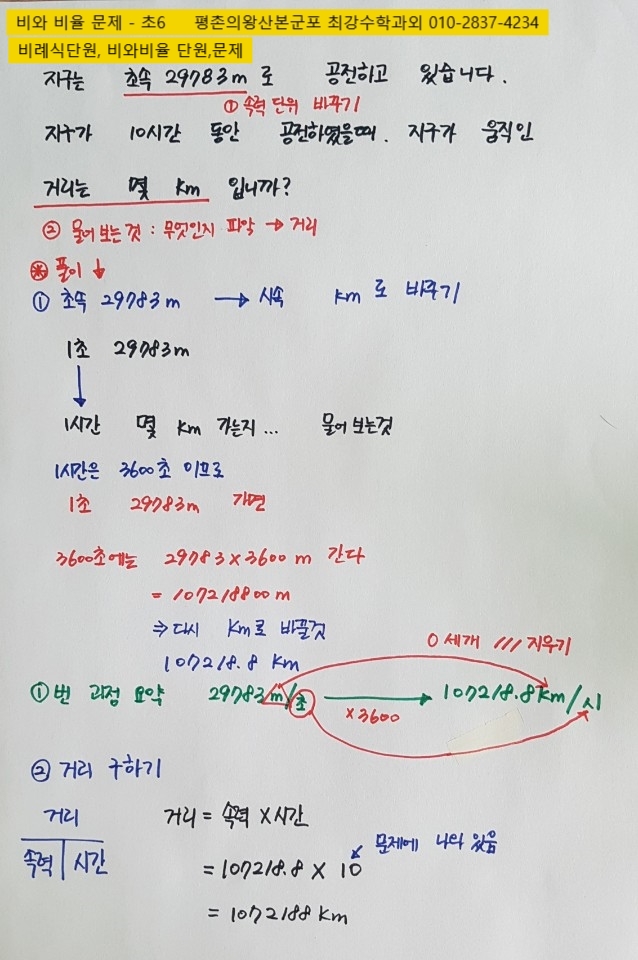 비와 비율 문제 - 초6 평촌의왕산본군포 최강수학과외 010-2837-4234
비례식단원, 비와비율 단원,문제
지구는 초속 29783m로 공전하고 있습니다.
① 속력 단위 바꾸기
지구가 10시간 동안 공전하였을때. 지구가 움직인
거리는 몇 km 입니까?
② 물어 보는것 : 무엇인지 파악 → 거리
※ 풀이 ↓
① 초속 29783m → 시속 km로 바꾸기
1초 29783m
↓
1시간 몇 km 가는지... 물어 보는것
1시간은 3600초 이므로
1초 29783m 가면
3600초에는 29783×3600 m 간다
= 107218800 m
⇒ 다시 km로 바꿀것
0 세개 /// 지우기
107218.8 km
①번 과정 요약 29783m/초 → 107218.8km/시
×3600
② 거리 구하기
거리
속력 | 시간
거리 = 속력 × 시간
문제에 나와 있음
= 107218.8 × 10
= 1072188 km